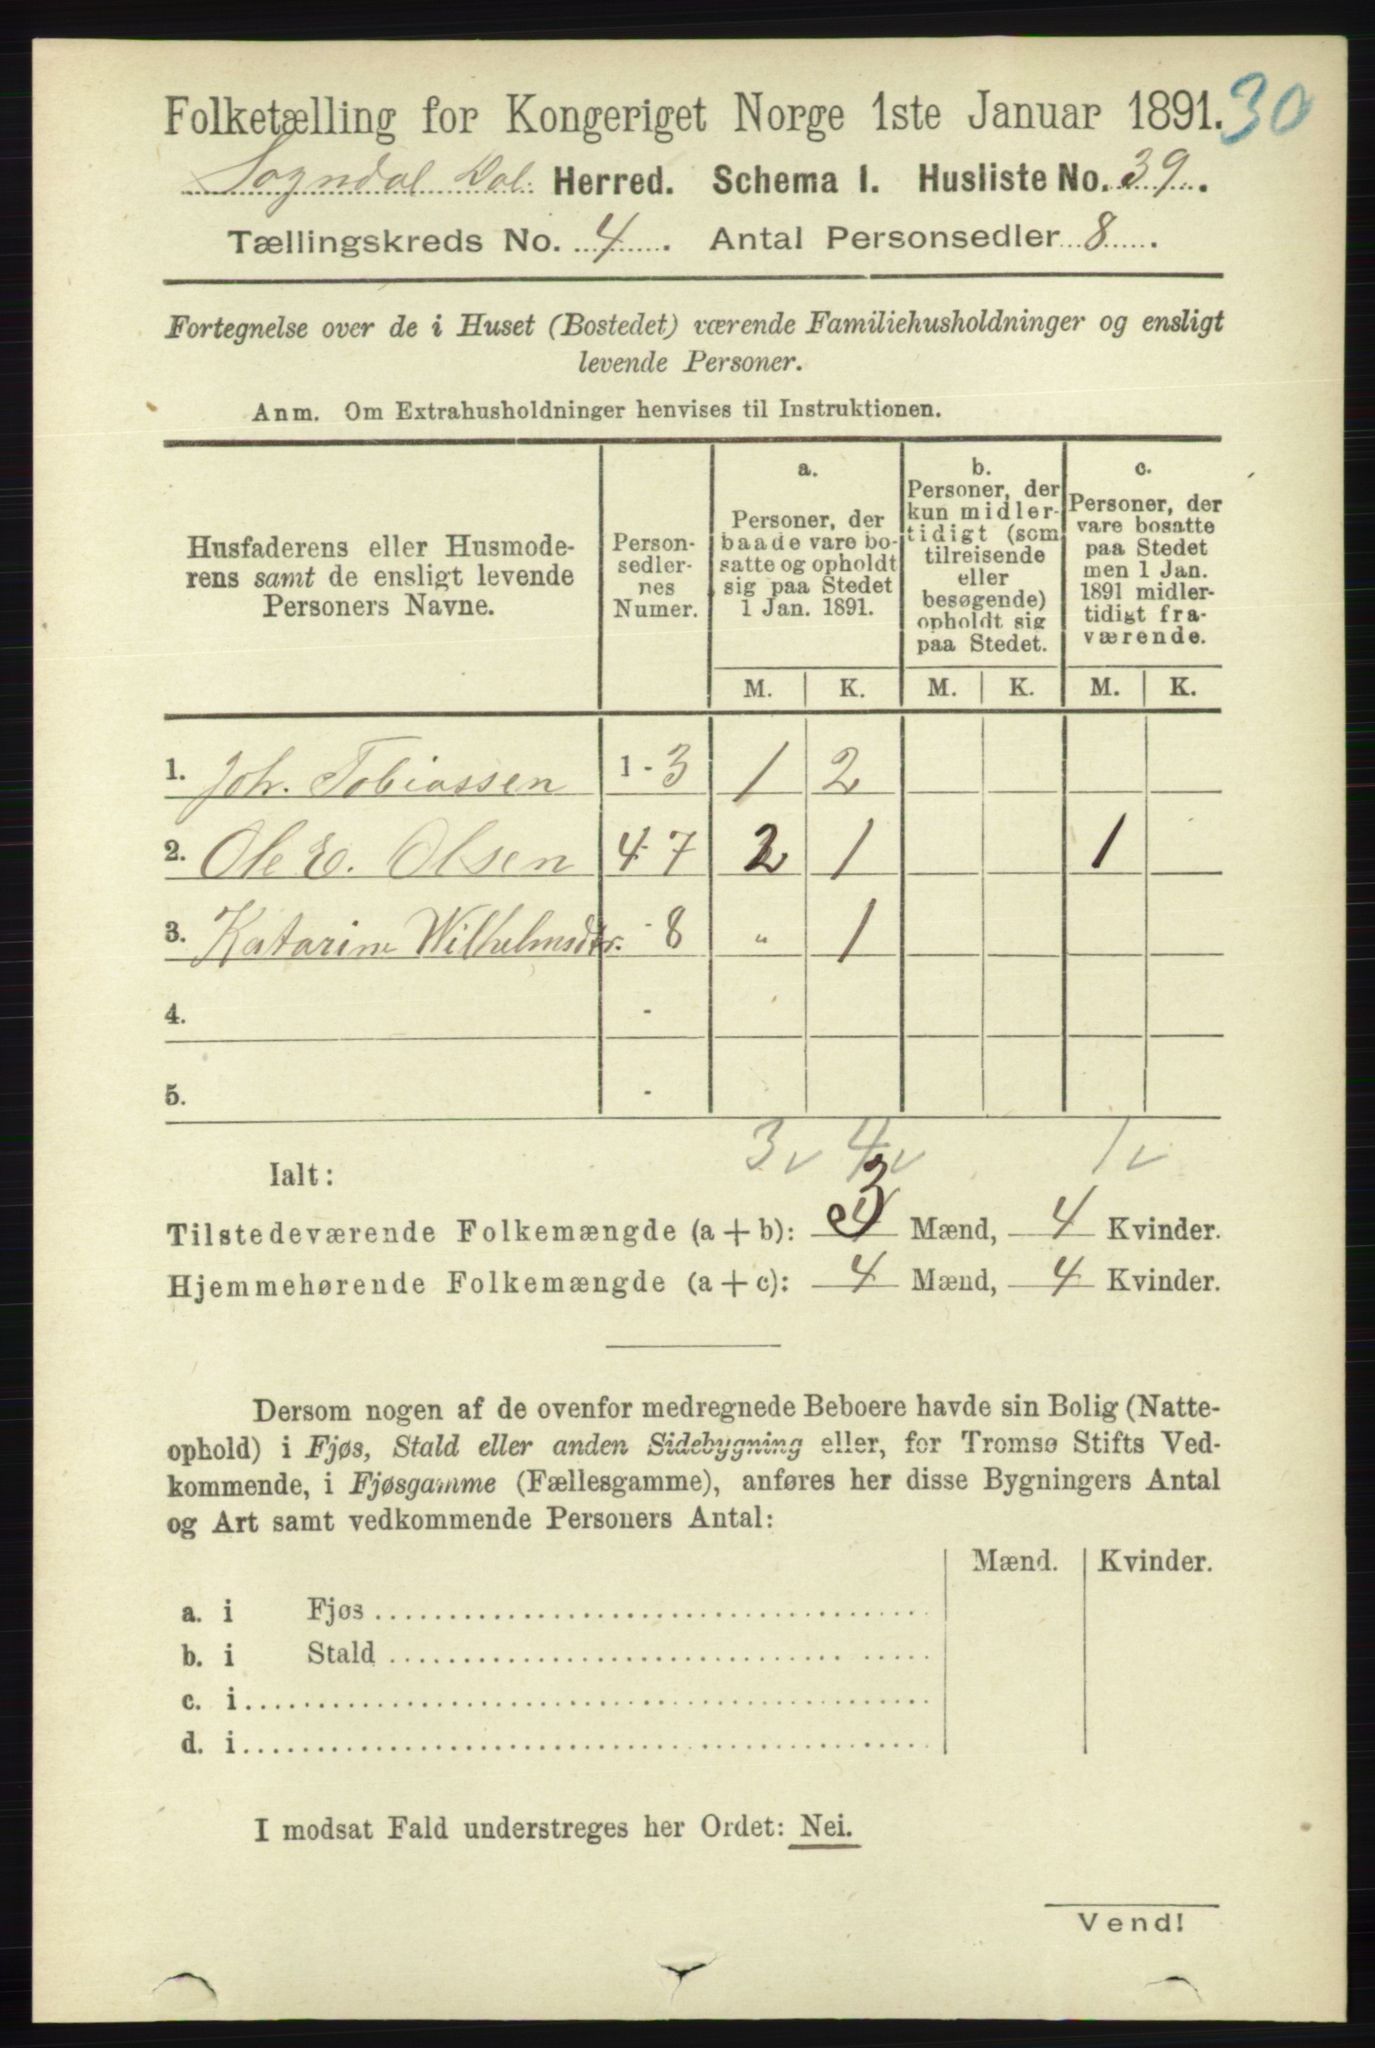 Folketælling for Kongeriget Norge 1ste Januar 1891. 30
Sogndal Lad. Herred. Schema I. Husliste No. 39.
Tællingskreds No. 4. Antal Personsedler 8.
Fortegnelse over de i Huset (Bostedet) værende Familiehusholdninger og ensligt
levende Personer.
Anm. Om Extrahusholdninger henvises til Instruktionen.
Husfaderens eller Husmode-
rens samt de ensligt levende
Personers Navne.
Person-
sedler-
nes
Numer.
a.
Personer, der
baade vare bo-
satte og opholdt
sig paa Stedet
1 Jan. 1891.
b.
Personer, der
kun midler-
tidigt (som
tilreisende
eller
besøgende)
opholdt sig
paa Stedet.
c.
Personer, der
vare bosatte
paa Stedet
men 1 Jan.
1891 midler-
tidigt fra-
værende.
M. K. M. K. M. K.
1. Joh. Tobiassen 1 - 3 1 2
2. Ole E. Olsen 4 - 7 2 1 1
3. Katarine Wilhelmsdtr. - 8 " 1
4. -
5. -
3 v 4 v 1 v
Ialt:
Tilstedeværende Folkemængde (a + b): 3 Mænd, 4 Kvinder.
Hjemmehørende Folkemængde (a + c): 4 Mænd, 4 Kvinder.
Dersom nogen af de ovenfor medregnede Beboere havde sin Bolig (Natte-
ophold) i Fjøs, Stald eller anden Sidebygning eller, for Tromsø Stifts Ved-
kommende, i Fjøsgamme (Fællesgamme), anføres her disse Bygningers Antal
og Art samt vedkommende Personers Antal:
Mænd. Kvinder.
a. i Fjøs
b. i Stald
c. i
d. i
I modsat Fald understreges her Ordet: Nei.
Vend!